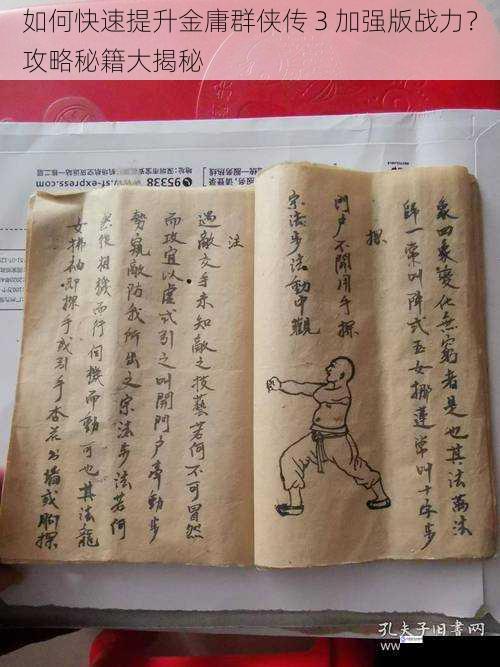 如何快速提升金庸群侠传 3 加强版战力？
攻略秘籍大揭秘
象四象變化無窮者是也其法萬法
歸一常叫陣式玉女挪蓮常叫十字步
摞
門户不開用手摞
宗法步法動中觀
注
遇敵交手未知敵之技藝若何不可冒然
而攻宜以虚式引之叫開門户牽動步
勢窺敵防我所出之宗法步法若何
然後相機而行伺機而動可也其法龍
女拂袖即摞手或引手杏花出墻或胸摞
95338
st-express.com
孔夫子旧書网